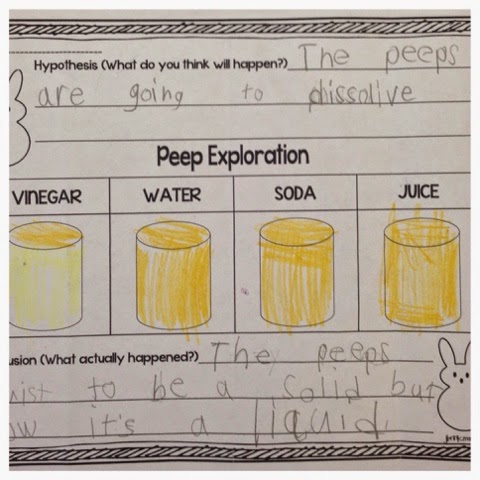 Hypothesis (What do you think will happen?) The peeps
are going to dissolive
Peep Exploration
VINEGAR WATER SODA JUICE
usion (What actually happened?) The peeps
uist to be a solid but
ow it's a liquid.